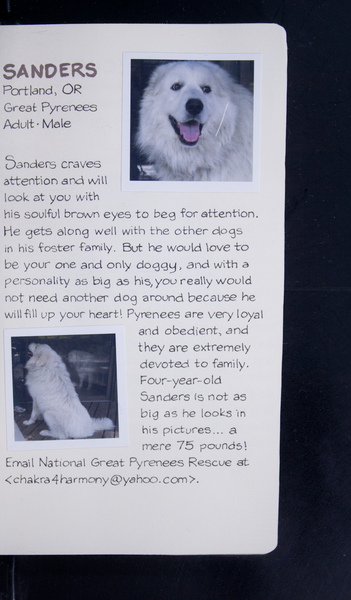 SANDERS
Portland, OR
Great Pyrenees
Adult · Male
Sanders craves
attention and will
look at you with
his soulful brown eyes to beg for attention.
He gets along well with the other dogs
in his foster family. But he would love to
be your one and only doggy, and with a
personality as big as his, you really would
not need another dog around because he
will fill up your heart! Pyrenees are very loyal
and obedient, and
they are extremely
devoted to family.
Four-year-old
Sanders is not as
big as he looks in
his pictures... a
mere 75 pounds!
Email National Great Pyrenees Rescue at
<chakra4harmony@yahoo.com>.